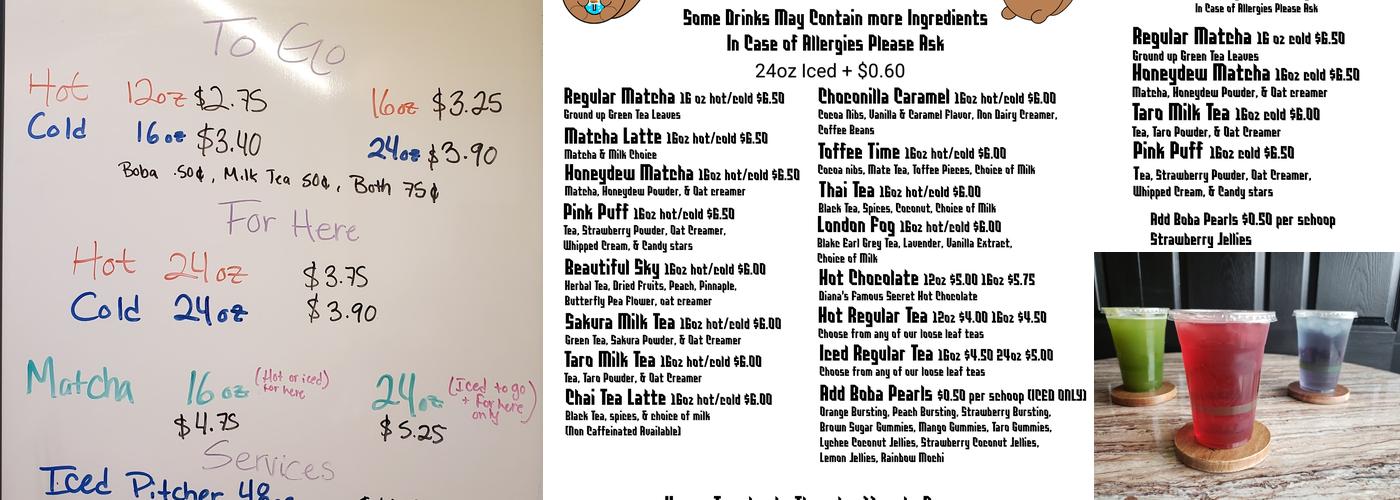 To Go
Hot 12oz $2.75 16oz $3.25
Cold 16oz $3.40 24oz $3.90
Boba .50¢, Milk Tea 50¢, Both 75¢
For Here
Hot 24oz $3.75
Cold 24oz $3.90
Matcha 16oz (Hot or iced) for here 24oz (Iced to go + For here only)
$4.75 $5.25
Services
Iced Pitcher 48oz
Some Drinks May Contain more Ingredients
In Case of Allergies Please Ask
24oz Iced + $0.60
Regular Matcha 16 oz hot/cold $6.50
Ground up Green Tea Leaves
Matcha Latte 16oz hot/cold $6.50
Matcha & Milk Choice
Honeydew Matcha 16oz hot/cold $6.50
Matcha, Honeydew Powder, & Oat creamer
Pink Puff 16oz hot/cold $6.50
Tea, Strawberry Powder, Oat Creamer,
Whipped Cream, & Candy stars
Beautiful Sky 16oz hot/cold $6.00
Herbal Tea, Dried Fruits, Peach, Pinnaple,
Butterfly Pea Flower, oat creamer
Sakura Milk Tea 16oz hot/cold $6.00
Green Tea, Sakura Powder, & Oat Creamer
Taro Milk Tea 16oz hot/cold $6.00
Tea, Taro Powder, & Oat Creamer
Chai Tea Latte 16oz hot/cold $6.00
Black Tea, spices, & choice of milk
(Non Caffeinated Available)
Choconilla Caramel 16oz hot/cold $6.00
Cocoa Nibs, Vanilla & Caramel Flavor, Non Dairy Creamer,
Coffee Beans
Toffee Time 16oz hot/cold $6.00
Cocoa nibs, Mate Tea, Toffee Pieces, Choice of Milk
Thai Tea 16oz hot/cold $6.00
Black Tea, Spices, Coconut, Choice of Milk
London Fog 16oz hot/cold $6.00
Blake Earl Grey Tea, Lavender, Vanilla Extract,
Choice of Milk
Hot Chocolate 12oz $5.00 16oz $5.75
Diana's Famous Secret Hot Chocolate
Hot Regular Tea 12oz $4.00 16oz $4.50
Choose from any of our loose leaf teas
Iced Regular Tea 16oz $4.50 24oz $5.00
Choose from any of our loose leaf teas
Add Boba Pearls $0.50 per schoop (ICED ONLY)
Orange Bursting, Peach Bursting, Strawberry Bursting,
Brown Sugar Gummies, Mango Gummies, Taro Gummies,
Lychee Coconut Jellies, Strawberry Coconut Jellies,
Lemon Jellies, Rainbow Mochi
In Case of Allergies Please Ask
Regular Matcha 16 oz cold $6.50
Ground up Green Tea Leaves
Honeydew Matcha 16oz cold $6.50
Matcha, Honeydew Powder, & Oat creamer
Taro Milk Tea 16oz cold $6.00
Tea, Taro Powder, & Oat Creamer
Pink Puff 16oz cold $6.50
Tea, Strawberry Powder, Oat Creamer,
Whipped Cream, & Candy stars
Add Boba Pearls $0.50 per schoop
Strawberry Jellies